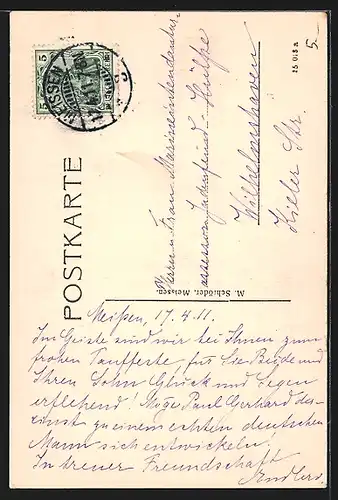 5.-
25 013 a
5 5
MEISSEN
POSTKARTE
Herrn u. Frau Marineintendantur-
assessor
Wilhelmshaven
Kieler Str.
M. Schröder, Meissen.
Meißen, 17.4.11.
Im Geiste sind wir bei Ihnen zum
frohen Tauffeste, für Sie Beide und
Ihren Sohn Glück und Segen
erflehend! Möge Paul Gerhard der-
einst zu einem echten deutschen
Mann sich entwickeln!
In treuer Freundschaft